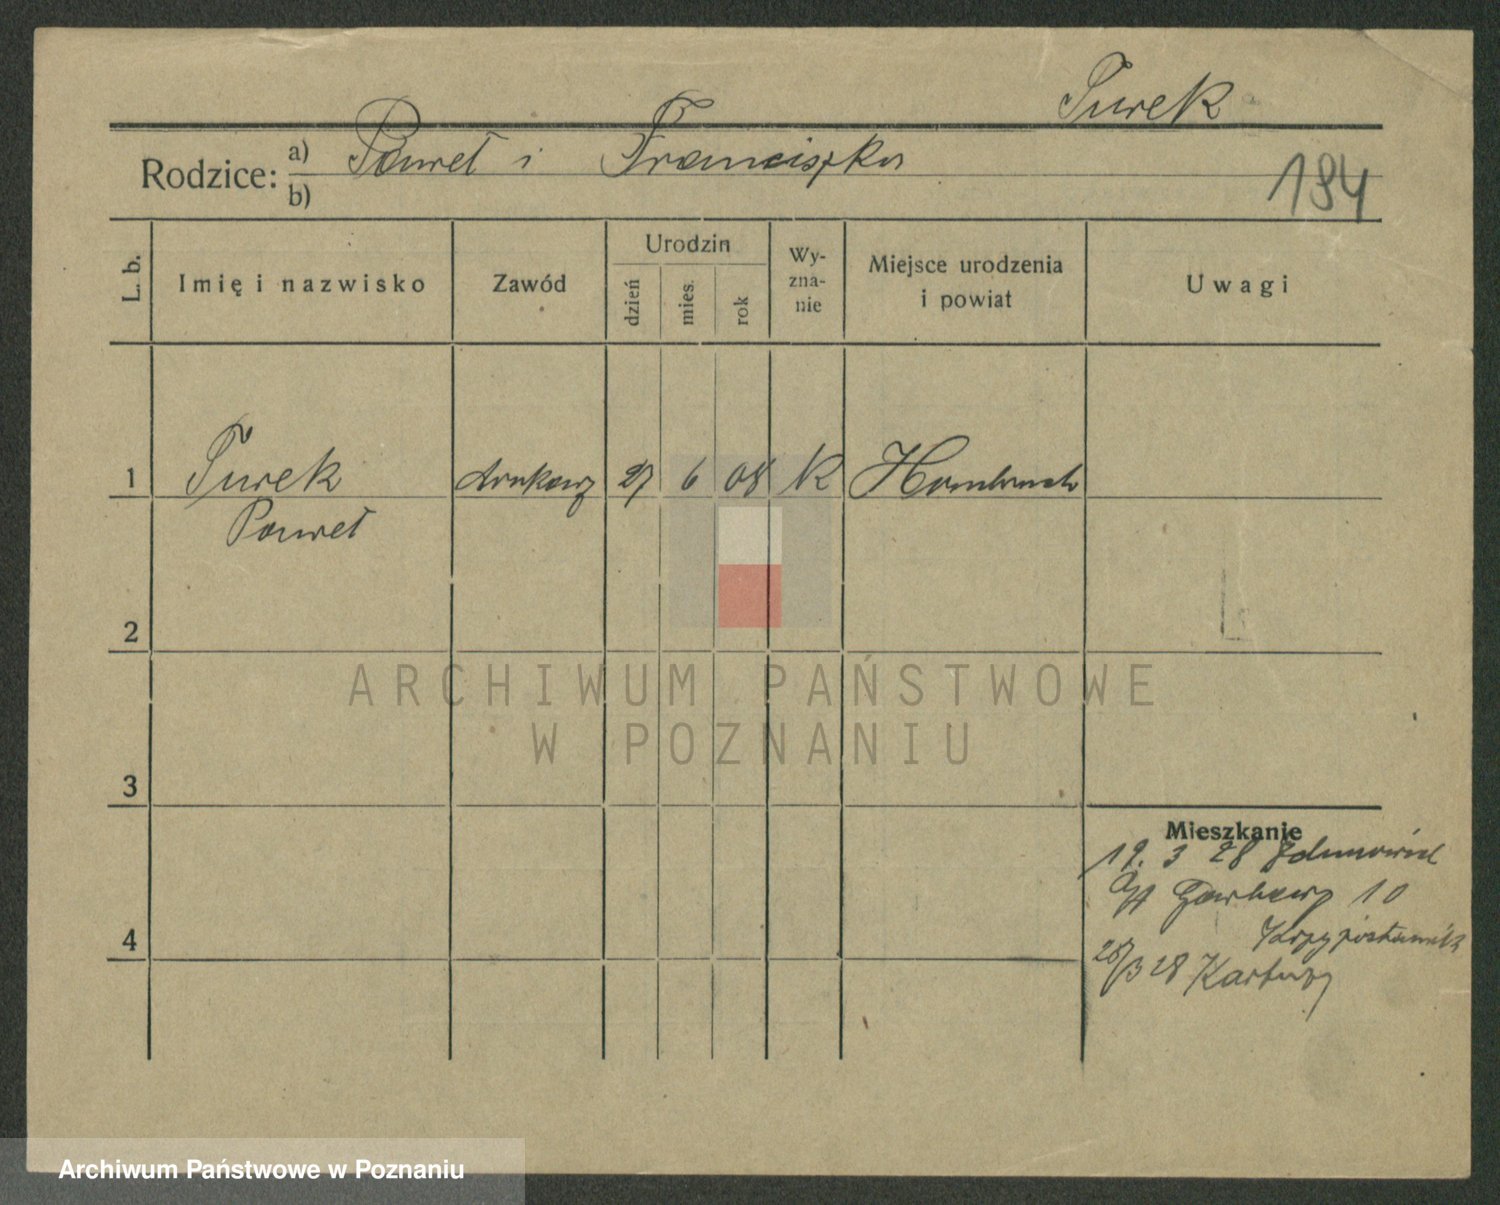 Turek
Rodzice: a) Paweł i Franciszka
b)
184
L. b.
Imię i nazwisko
Zawód
Urodzin
dzień
mies.
rok
Wy-
zna-
nie
Miejsce urodzenia
i powiat
Uwagi
1
Turek
Paweł
drukarz
27
6
08
K
Hombruch
2
3
4
Mieszkanie
19. 3 28
Garbary 10
28/3 28 Kartuzy
ARCHIWUM PAŃSTWOWE
W POZNANIU
Archiwum Państwowe w Poznaniu